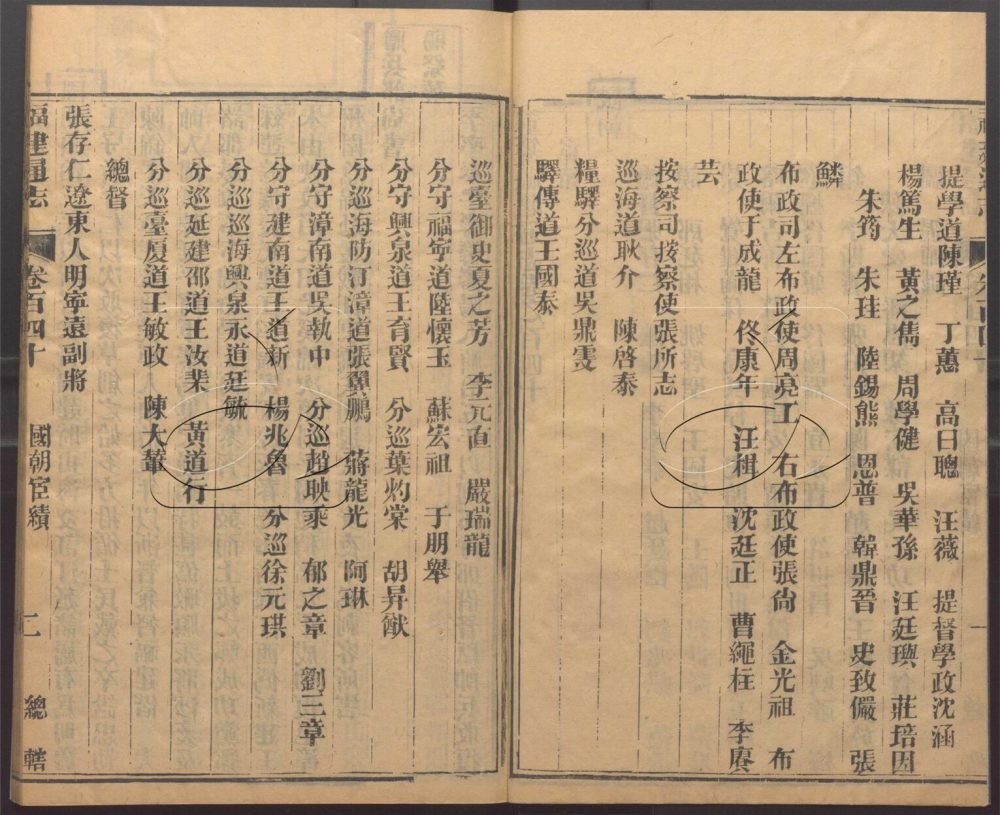 提學道陳瑾 丁蕙 高日聰 汪薇 提督學政沈涵
楊篤生 黃之雋 周學健 吳華孫 汪廷璵 莊培因
朱筠 朱珪 陸錫熊 恩普 韓鼎晉 史致儼 張
鱗
布政司左布政使周亮工 右布政使張尙 金光祖 布
政使于成龍 佟康年 汪楫 沈廷正 曹繩柱 李賡
芸
按察司按察使張所志
巡海道耿介 陳啓泰
糧驛分巡道吳鼎雯
驛傳道王國泰
巡臺御史夏之芳 李元直 嚴瑞龍
分守福寧道陸懷玉 蘇宏祖 于朋舉
分守興泉道王育賢 分巡葉灼棠 胡昇猷
分巡海防汀漳道張翼鵬 蔣龍光 阿琳
分守漳南道吳執中 分巡趙映乘 郁之章 劉三章
分守建南道王道新 楊兆魯 分巡徐元珙
分巡巡海興泉永道廷毓
分巡延建邵道王汝棐 黃道行
分巡臺厦道王敏政 陳大輦
總督
張存仁遼東人明寧遠副將
福建通志 卷百四十 國朝宦績 二 總轄